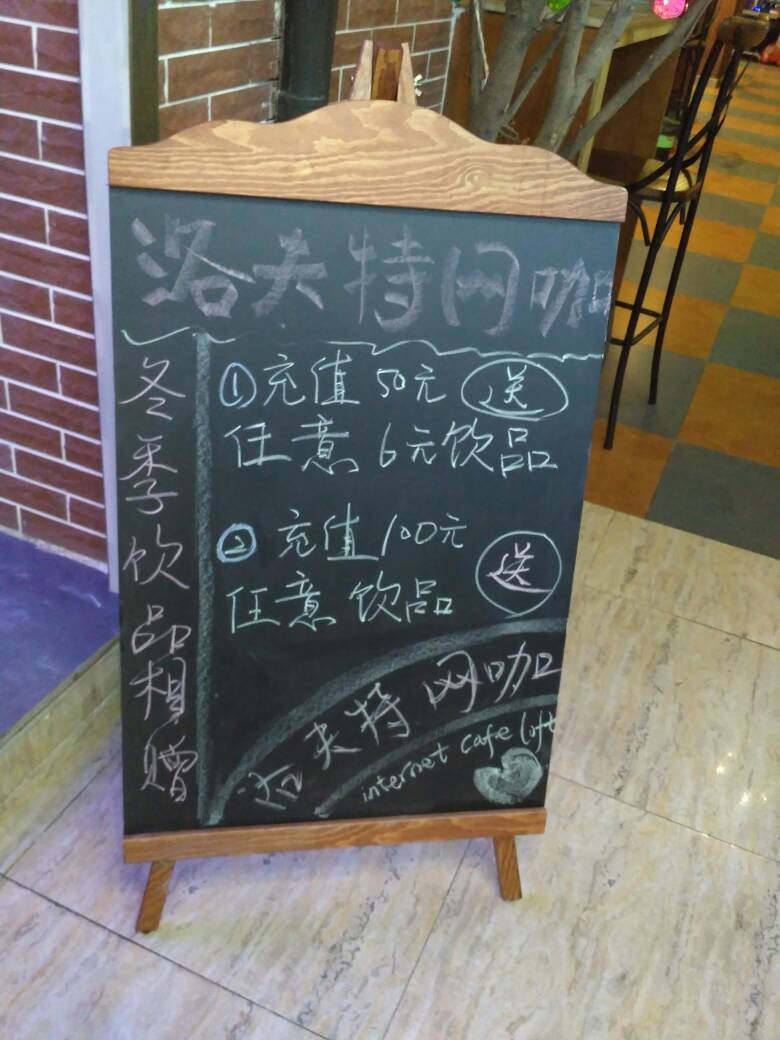 洛夫特网咖
冬季饮品相赠
①充值50元 送
任意6元饮品
② 充值100元 送
任意饮品
洛夫特网咖
internet cafe loft